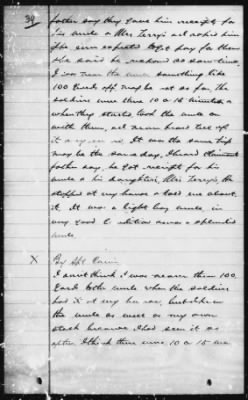 39
father say they gave him receipts for
his mule & Mrs Terry's
he expected to get pay for them
He said he
I was near the mule something like
100 yards off may be not so far, the
soldiers were there 10 or 15 minutes &
when they started, took the mule on
with them, and never heard tell of
it any more. It was the same trip
may be the same day, I heard Claimants
father say, he got receipt for his
mule & his daughter, Mrs Terry's, He
stopped at my house & told me about
it. It was a light bay mule, in
very good Condition was a splendid
mule.
X
By Spl
I don't think I was nearer than 100
Yards to the mule when the soldiers
had it at my house, but I knew
the mule as well as my own
stock because I had seen it so
often I think there were 10 or 15 men